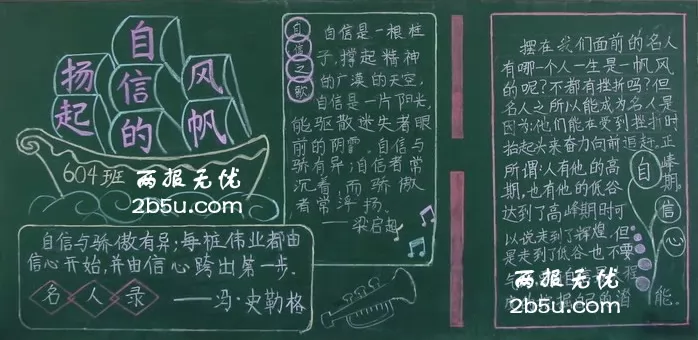 扬起
自信的
风帆
604班
两报无优
2b5u.com
自信与骄傲有异;每桩伟业都由
信心开始,并由信心跨出第一步.
名人录 ——冯·史勒格
自信之歌
自信是一根柱
子,撑起精神
的广漠的天空,
自信是一片阳光,
能驱散迷失者眼
前的阴霾。自信与
骄有异;自信者常
沉着,而骄傲
者常浮扬.
——梁启超
摆在我们面前的名人
有哪一个人一生是一帆风
的呢?不都有挫折吗?但
名人之所以能成为名人是
因为:他们能在受到挫折时
抬起头来奋力向前追赶.正
所谓:人有他的高
期,也有他的低谷
达到了高峰期时可
以说走到了辉煌,但
是走到了低谷也不要
能.
自信心
两报无优
2b5u.com